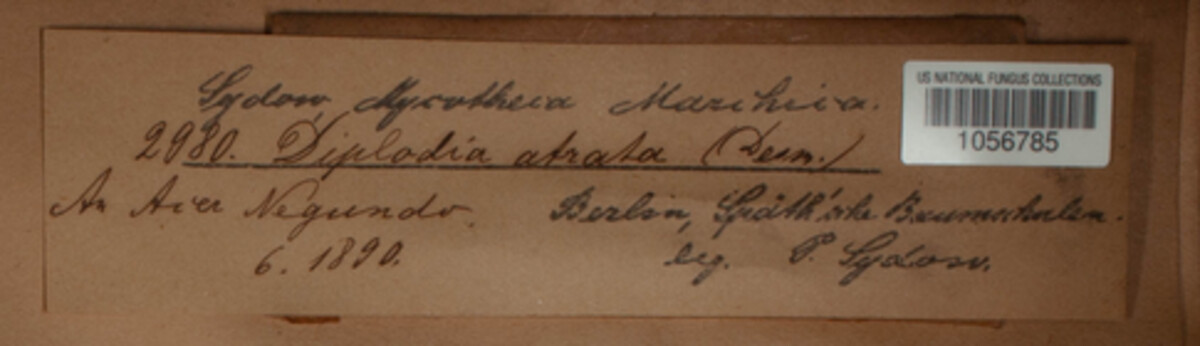 Sydow, Mycotheca Marchica.
2980. Diplodia atrata (Desm.)
An Acer Negundo. Berlin, Späth'sche Baumschulen.
6. 1890. leg. P. Sydow.
US NATIONAL FUNGUS COLLECTIONS
1056785